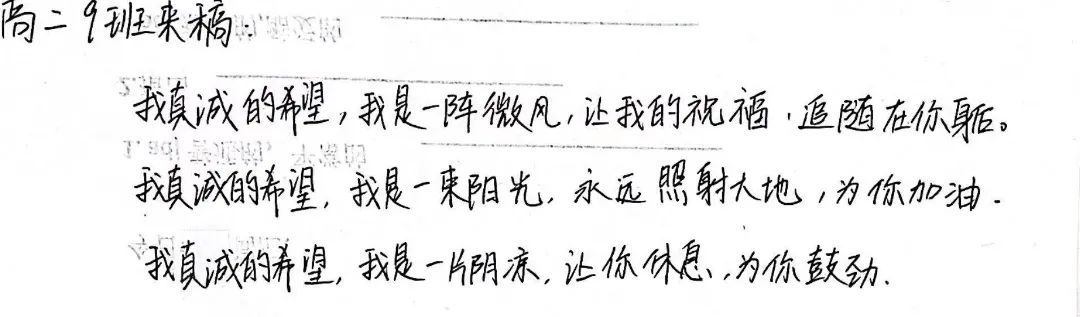 高二9班来稿
我真诚的希望,我是一阵微风,让我的祝福,追随在你身后。
我真诚的希望,我是一束阳光,永远照射大地,为你加油.
我真诚的希望,我是一片阴凉,让你休息,为你鼓劲.